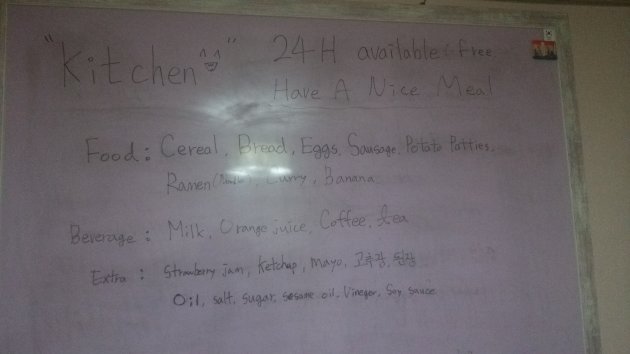 "Kitchen ^^" 24H available & free
Have A Nice Meal
Food : Cereal, Bread, Eggs, Sausage, Potato Patties,
Ramen (Noodle), Curry, Banana
Beverage : Milk, Orange juice, Coffee, tea
Extra : Strawberry jam, Ketchup, Mayo, 고추장, 된장
Oil, salt, sugar, sesame oil, Vineger, Soy sauce